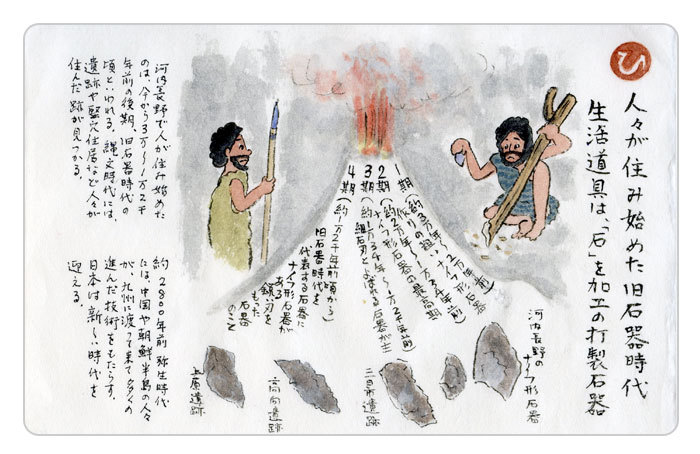 ひ
人々が住み始めた旧石器時代
生活道具は、「石」を加工の打製石器
1期
2期
ナイフ形石器の最高期
3期
細石刃とよばれる石器が主
4期(約1万2千年前頃から)
旧石器時代を
代表する石器に
ナイフ形石器が
ある
刃を
もった
石器
のこと
河内長野の
ナイフ形石器
三日市遺跡
高向遺跡
上原遺跡
河内長野で人が住み始めた
のは、今から3万〜1万2千
年前の後期、旧石器時代の
頃といわれる。縄文時代には、
遺跡や竪穴住居など人々が
住んだ跡が見つかる。
約2800年前弥生時代
には、中国や朝鮮半島の人々
が、九州に渡って来て多くの
進んだ技術をもたらす。
日本は新しい時代を
迎える。